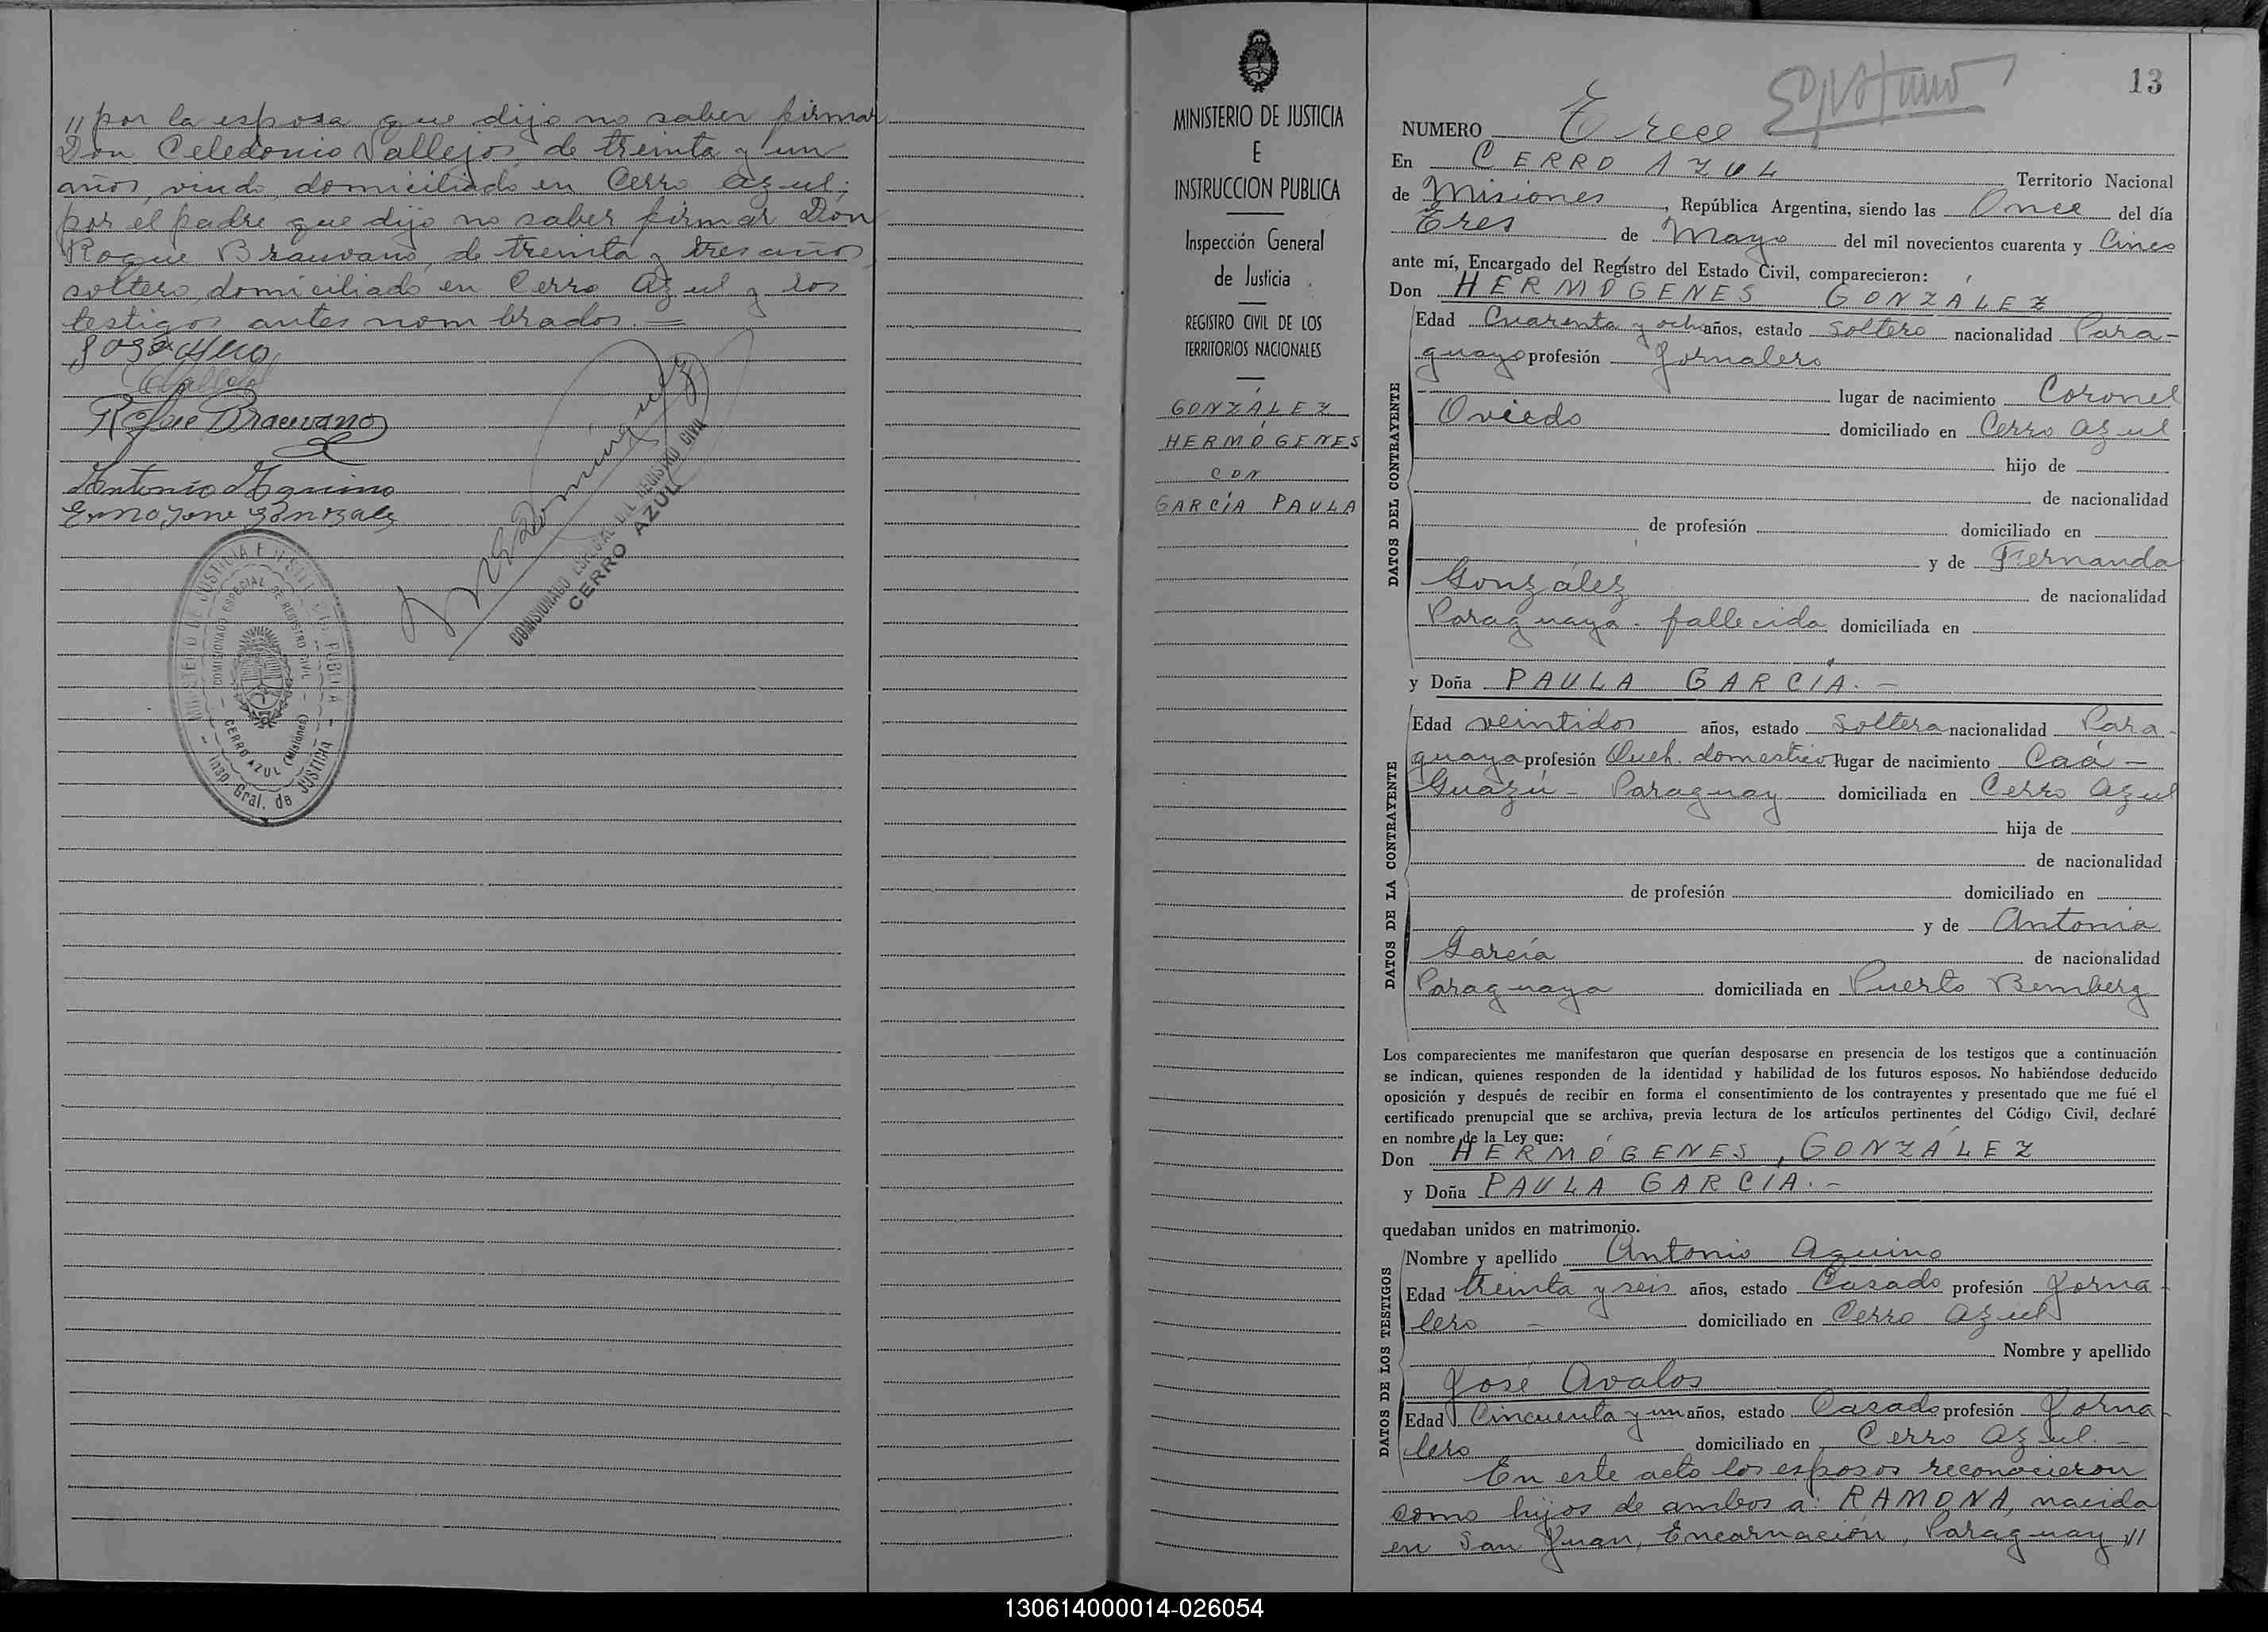 // por la esposa que dijo no saber firmar
Don Celedonio Vallejos, de treinta y un
años, viudo, domiciliado en Cerro Azul;
por el padre que dijo no saber firmar Don
Roque Brauvano, de treinta y tres años
soltero, domiciliado en Cerro Azul y los
testigos antes nombrados. =
Roque Brauvano
Antonio Aquino
COMISIONADO ESPECIAL DEL REGISTRO CIVIL
CERRO AZUL
MINISTERIO DE JUSTICIA E INSTR. PUBLICA
COMISIONADO ESPECIAL DE REGISTRO CIVIL
CERRO AZUL (Misiones)
Insp. Gral. de JUSTICIA
MINISTERIO DE JUSTICIA
E
INSTRUCCION PUBLICA
Inspección General
de Justicia
REGISTRO CIVIL DE LOS
TERRITORIOS NACIONALES
GONZÁLEZ
HERMÓGENES
CON
GARCÍA PAULA
13
NUMERO Trece
En CERRO AZUL Territorio Nacional
de Misiones, República Argentina, siendo las Once del día
Tres de Mayo del mil novecientos cuarenta y Cinco
ante mí, Encargado del Registro del Estado Civil, comparecieron:
Don HERMÓGENES GONZÁLEZ
DATOS DEL CONTRAYENTE
Edad Cuarenta y ocho años, estado soltero nacionalidad Para-
guayo profesión Jornalero
lugar de nacimiento Coronel
Oviedo domiciliado en Cerro Azul
hijo de
de nacionalidad
de profesión domiciliado en
y de Fernanda
González de nacionalidad
Paraguaya - fallecida domiciliada en
y Doña PAULA GARCÍA. -
DATOS DE LA CONTRAYENTE
Edad veintidos años, estado Soltera nacionalidad Para-
guaya profesión Queh. domestico lugar de nacimiento Caá-
Guazú - Paraguay domiciliada en Cerro Azul
hija de
de nacionalidad
de profesión domiciliado en
y de Antonia
García de nacionalidad
Paraguaya domiciliada en Puerto Bemberg
Los comparecientes me manifestaron que querían desposarse en presencia de los testigos que a continuación
se indican, quienes responden de la identidad y habilidad de los futuros esposos. No habiéndose deducido
oposición y después de recibir en forma el consentimiento de los contrayentes y presentado que me fué el
certificado prenupcial que se archiva, previa lectura de los artículos pertinentes del Código Civil, declaré
en nombre de la Ley que:
Don HERMÓGENES GONZÁLEZ
y Doña PAULA GARCÍA. -
quedaban unidos en matrimonio.
DATOS DE LOS TESTIGOS
Nombre y apellido Antonio Aquino
Edad treinta y seis años, estado Casado profesión Jorna-
lero - domiciliado en Cerro Azul
Nombre y apellido
José Avalos
Edad Cincuenta y un años, estado Casado profesión Jorna-
lero domiciliado en Cerro Azul. -
En este acto los esposos reconocieron
como hijos de ambos a: RAMONA, nacida
en San Juan, Encarnación, Paraguay //
130614000014-026054